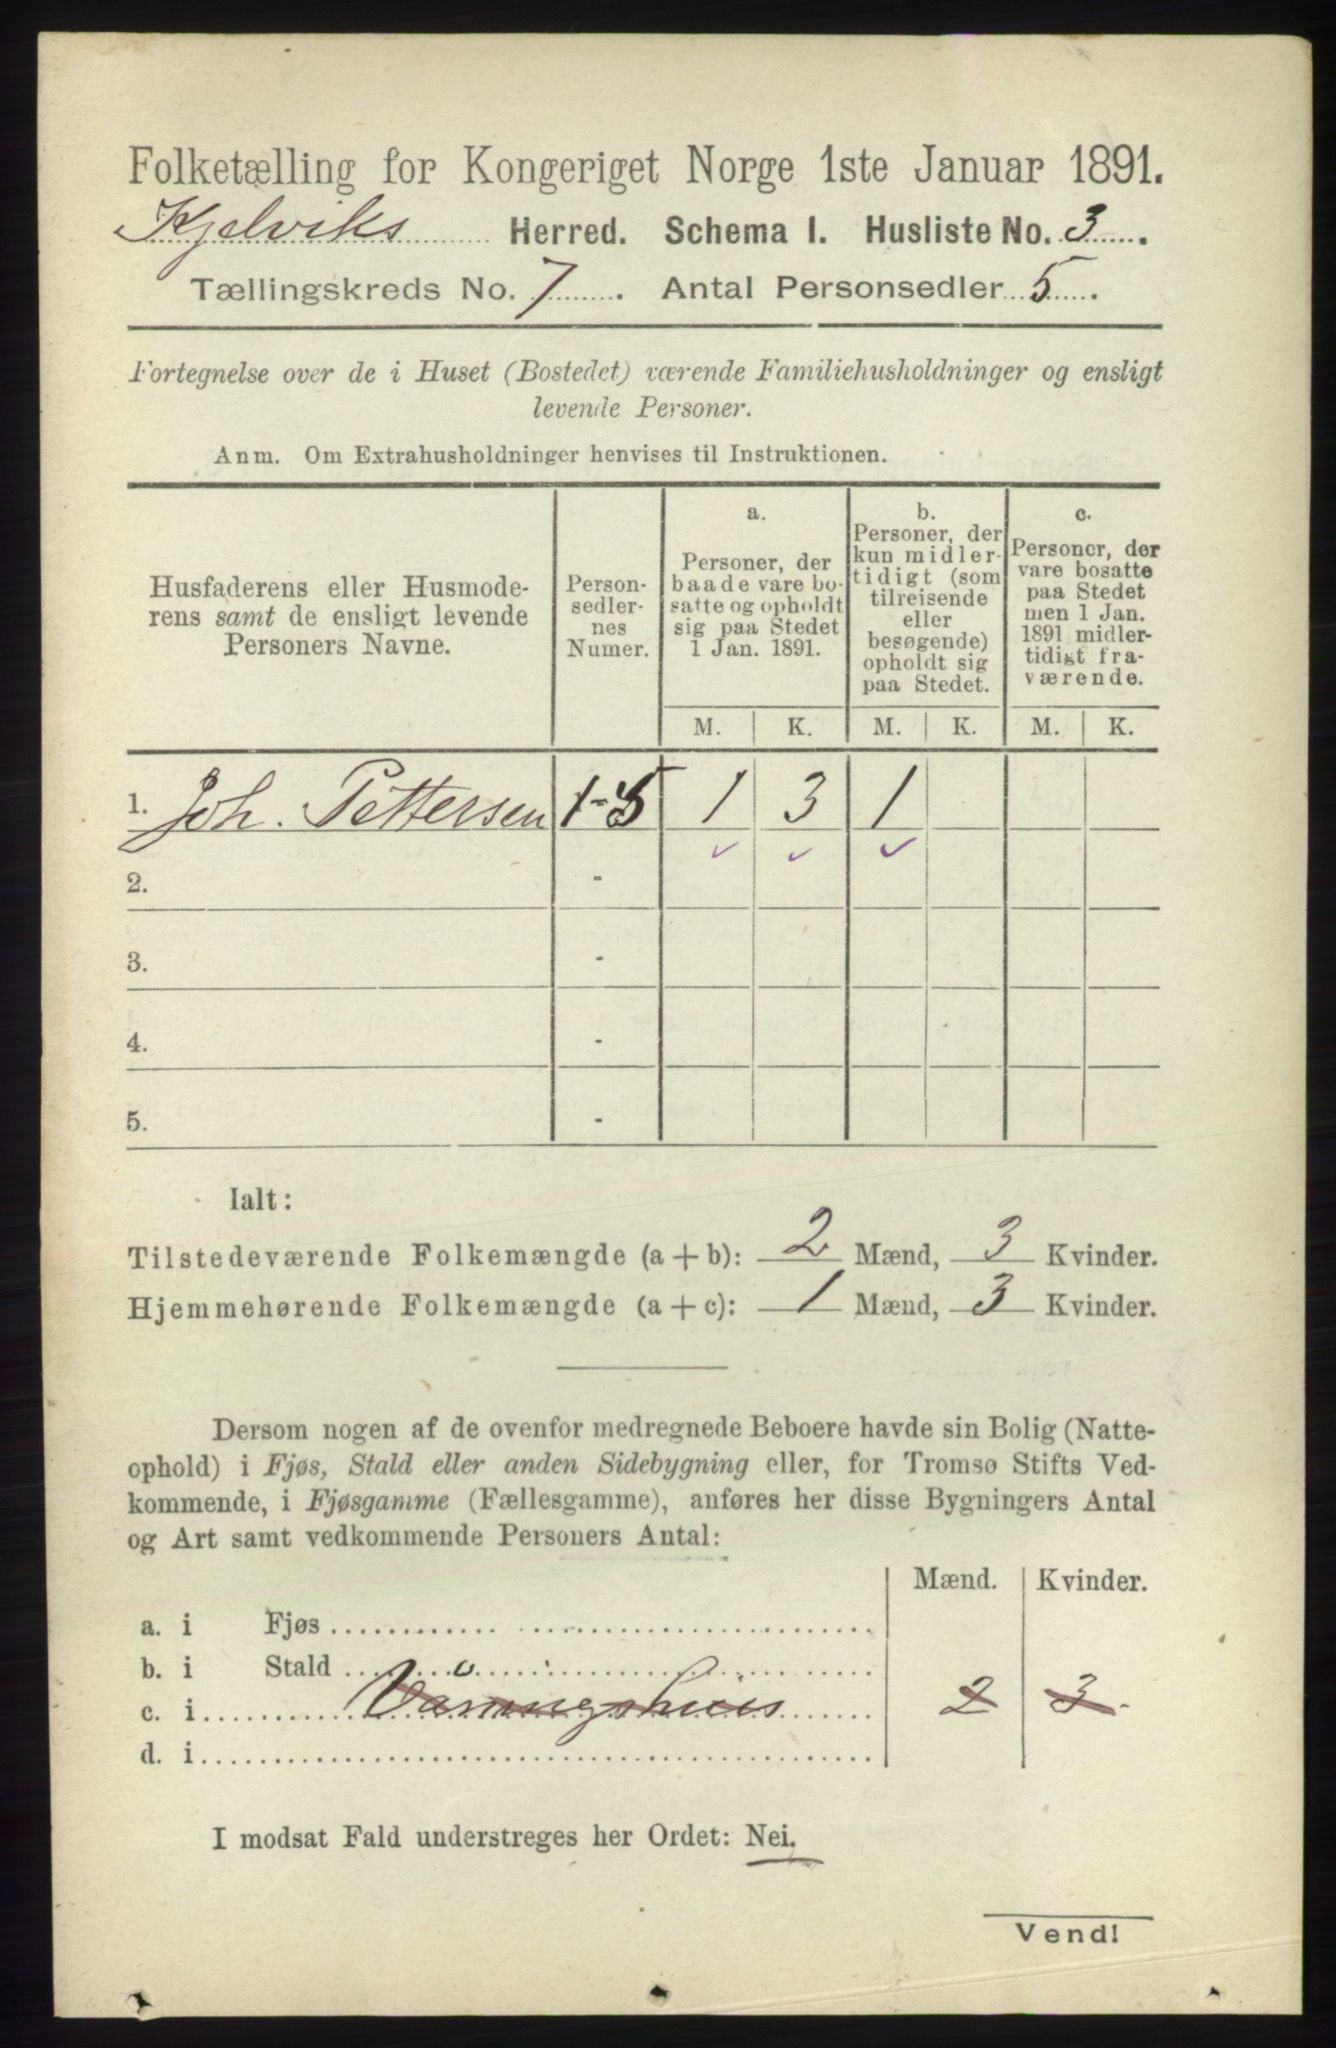 Folketælling for Kongeriget Norge 1ste Januar 1891.
Kjelviks Herred. Schema I. Husliste No. 3.
Tællingskreds No. 7. Antal Personsedler 5.
Fortegnelse over de i Huset (Bostedet) værende Familiehusholdninger og ensligt
levende Personer.
Anm. Om Extrahusholdninger henvises til Instruktionen.
Husfaderens eller Husmode-
rens samt de ensligt levende
Personers Navne.
Person-
sedler-
nes
Numer.
a.
Personer, der
baade vare bo-
satte og opholdt
sig paa Stedet
1 Jan. 1891.
b.
Personer, der
kun midler-
tidigt (som
tilreisende
eller
besøgende)
opholdt sig
paa Stedet.
c.
Personer, der
vare bosatte
paa Stedet
men 1 Jan.
1891 midler-
tidigt fra-
værende.
M. K. M. K. M. K.
1. Joh. Pettersen 1-5 1 3 1
2. -
3. -
4. -
5. -
Ialt:
Tilstedeværende Folkemængde (a + b): 2 Mænd, 3 Kvinder.
Hjemmehørende Folkemængde (a + c): 1 Mænd, 3 Kvinder.
Dersom nogen af de ovenfor medregnede Beboere havde sin Bolig (Natte-
ophold) i Fjøs, Stald eller anden Sidebygning eller, for Tromsø Stifts Ved-
kommende, i Fjøsgamme (Fællesgamme), anføres her disse Bygningers Antal
og Art samt vedkommende Personers Antal:
Mænd. Kvinder.
a. i Fjøs
b. i Stald
c. i 2 3
d. i
I modsat Fald understreges her Ordet: Nei.
Vend!